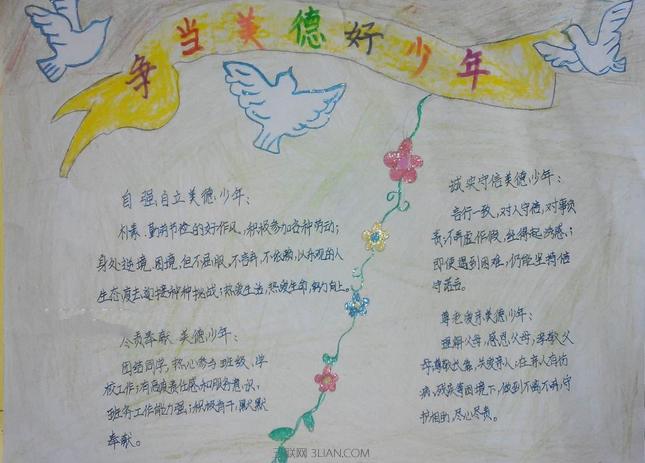 争当美德好少年
自强自立美德少年：
朴素、勤俭节俭的好作风，积极参加各种劳动；
身处逆境、困境，但不屈服，不言弃，不依赖，以乐观的人
生态度去迎接种种挑战；热爱生活，热爱生命，努力向上。
尽责奉献美德少年：
团结同学，热心参与班级、学
校工作；有高度责任感和服务意识，
班务工作能力强；积极肯干，默默
奉献。
诚实守信美德少年：
言行一致，对人守信，对事负
责；不弄虚作假，经得起诱惑；
即使遇到困难，仍能坚持信
守诺言。
尊老爱亲美德少年：
理解父母，感恩父母，孝敬父
母，尊敬长辈，关爱亲人；在亲人有伤
病、残疾等困境下，做到不离不弃，守
护相助，尽心尽责。
三联网 3LIAN.COM